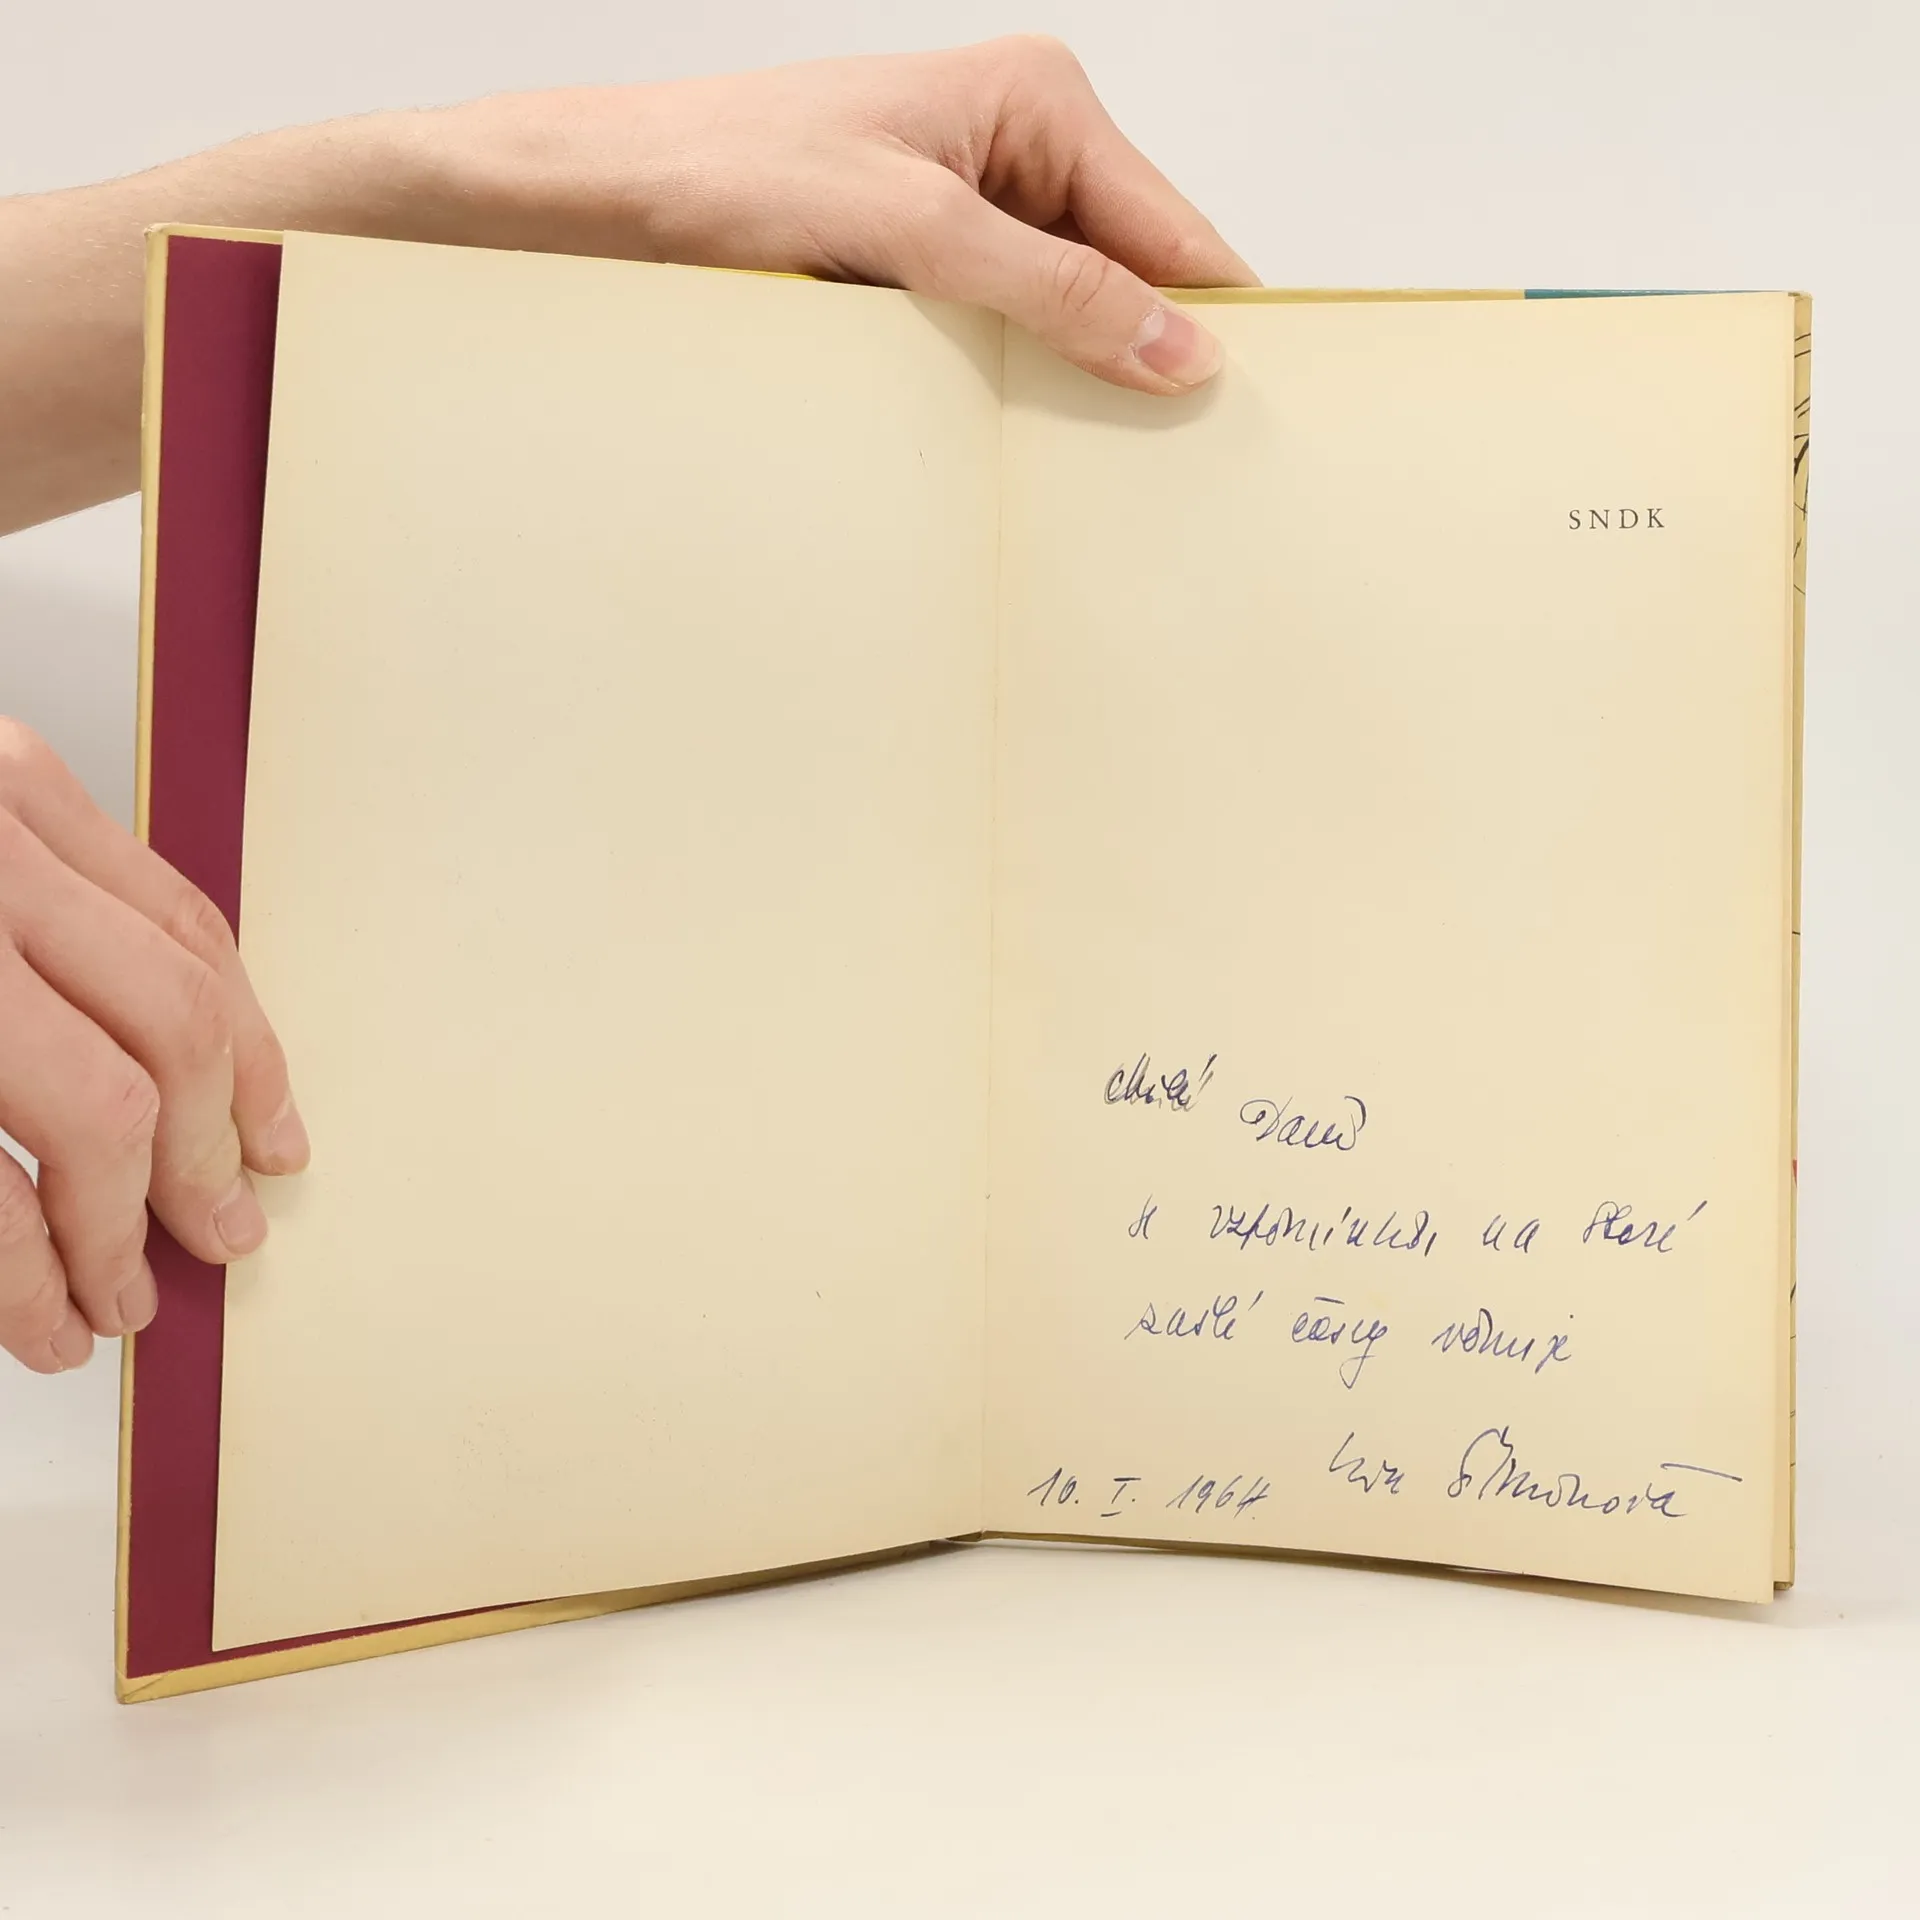 SNDK
Milé Daně
k vzpomínce na staré
zašlé časy věnuje
10. I. 1964. Šimonová